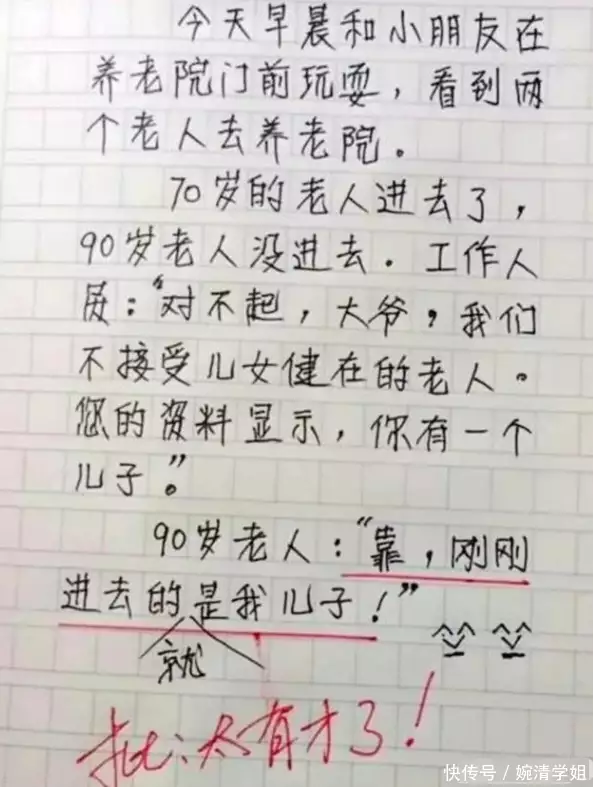 今天早晨和小朋友在
养老院门前玩耍，看到两
个老人去养老院。
70岁的老人进去了，
90岁老人没进去.工作人
员："对不起，大爷，我们
不接受儿女健在的老人。
您的资料显示，你有一个
儿子"。
90岁老人："靠，刚刚
进去的是我儿子！"
就
批：太有才了！
快传号／婉清学姐